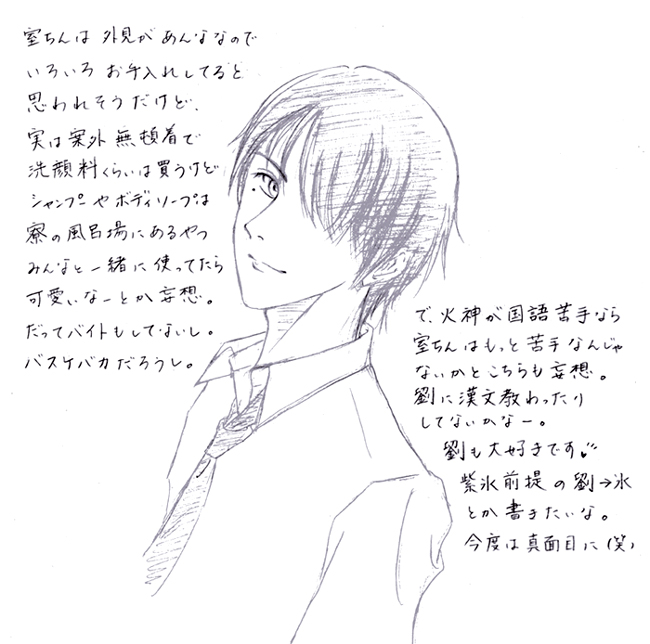 室ちんは 外見が あんななので
いろいろ お手入れしてると
思われそうだけど、
実は案外 無頓着で
洗顔料くらいは買うけど
シャンプーやボディソープは
寮の風呂場にあるやつ
みんなと一緒に使ってたら
可愛いなーとか妄想。
だってバイトもしてないし。
バスケバカだろうし。
で、火神が国語苦手なら
室ちんはもっと苦手なんじゃ
ないかとこちらも妄想。
劉に漢文教わったり
してないかなー。
劉も大好きです
紫氷前提の劉→氷
とか書きたいな。
今度は真面目に(笑)